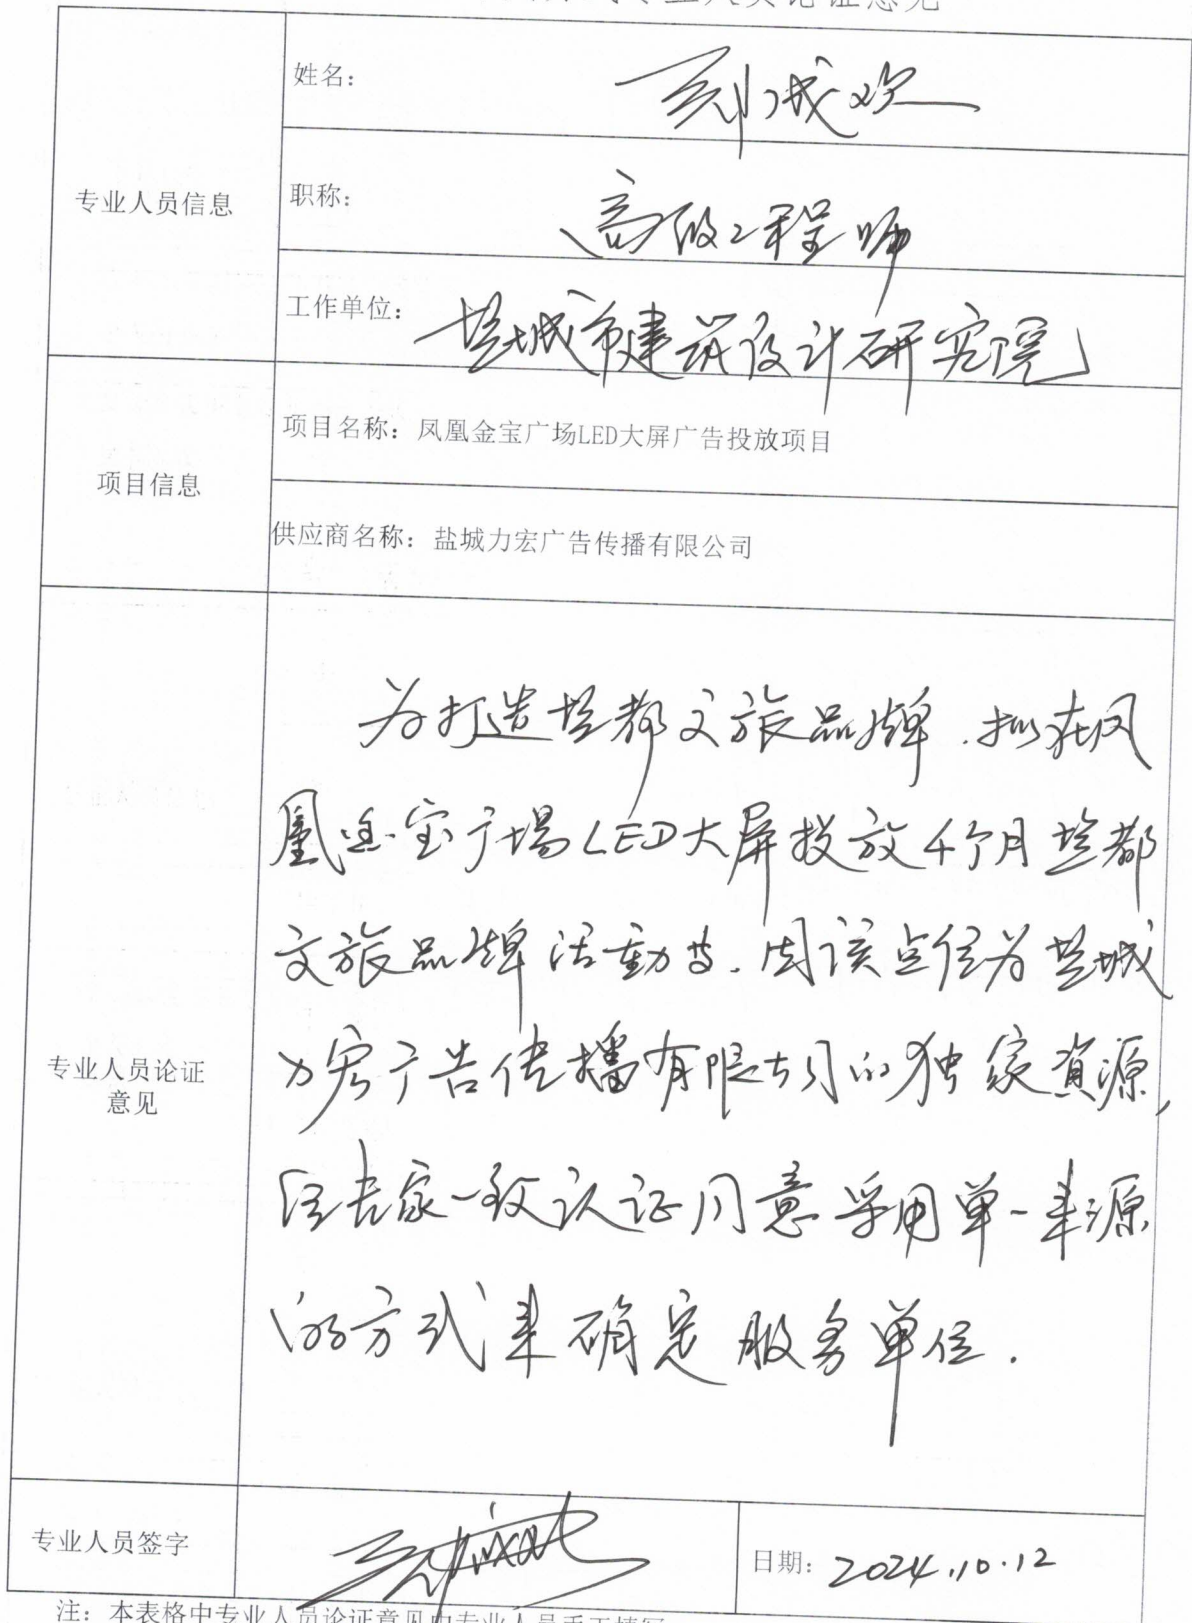 专业人员论证意见
专业人员信息
姓名：
职称：
高级工程师
工作单位：
盐城市建筑设计研究院
项目信息
项目名称：凤凰金宝广场LED大屏广告投放项目
供应商名称：盐城力宏广告传播有限公司
专业人员论证
意见
为打造盐都文旅品牌，拟在凤
凰金宝广場LED大屏投放4个月盐都
文旅品牌活动等，因该点位为盐城
力宏广告传播有限公司的独家資源，
经专家一致认证同意采用单一来源
的方式来确定服务单位．
专业人员签字
日期：2024.10.12
注：本表格中专业人员论证意见由专业人员手工填写